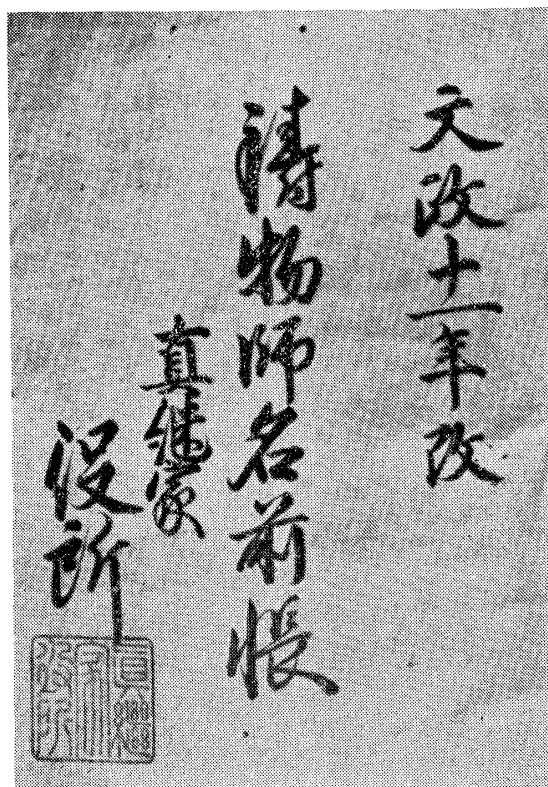 文政十一年改
鋳物師名前帳
真継家
役所
真継家役所